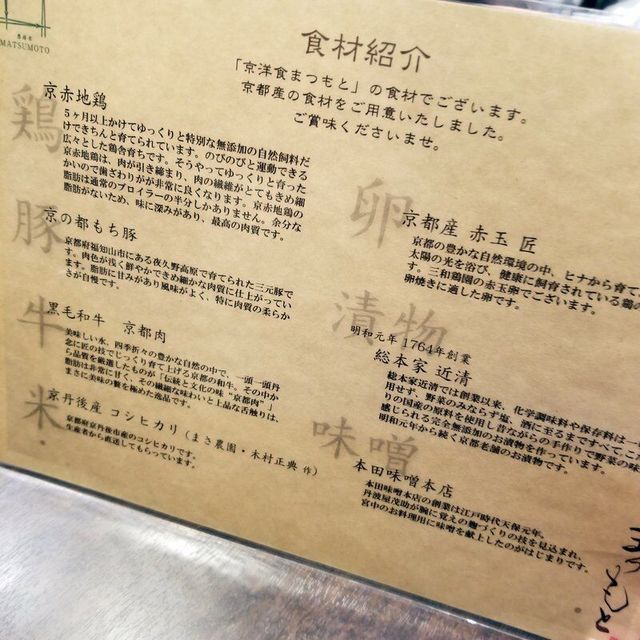 MATSUMOTO
食材紹介
「京洋食まつもと」の食材でございます。
京都産の食材をご用意いたしました。
ご賞味くださいませ。
鶏
京赤地鶏
5ヶ月以上かけてゆっくりと特別な無添加の自然飼料だ
けできちんと育てられています。のびのびと運動できる
広々とした鶏舎育ちです。そうやってゆっくりと育った
京赤地鶏は、肉が引き締まり、肉の繊維がとてもきめ細
かいので歯ざわりがが非常に良くなります。京赤地鶏の
脂肪は通常のブロイラーの半分しかありません。余分な
脂肪がないため、味に深みがあり、最高の肉質です。
豚
京の都もち豚
京都府福知山市にある夜久野高原で育てられた三元豚で
す。肉色が浅く鮮やかできめ細かな肉質に仕上がってい
ます。脂肪に甘みがあり風味がよく、特に肉質の柔らか
さが自慢です。
牛
黒毛和牛 京都肉
美味しい水、四季折々の豊かな自然の中で、一頭一頭丹
念に匠の技でじっくり育て上げる京都の和牛。その中か
ら品質を厳選したものが「伝統と文化の味“京都肉”」
脂肪は非常に甘く、その繊細な味わいと上品な舌触りは、
まさに美味の贅を極めた逸品です。
米
京丹後産 コシヒカリ(まさ農園・木村正典 作)
京都府京丹後市産のコシヒカリです。
生産者から直送してもらっています。
卵
京都産 赤玉 匠
京都の豊かな自然環境の中、ヒナから育て
太陽の光を浴び、健康に飼育されている鶏の
卵です。三和鶏園の赤玉卵でございます。
卵焼きに適した卵です。
漬物
明和元年 1764年創業
総本家 近清
総本家近清では創業以来、化学調味料や保存料は一
用せず、野菜のみならず塩、酒に至るまですべてこ
りの国産の原料を使用し昔ながらの手作りで野菜の味
感じられる完全無添加のお漬物を作っています。
明和元年から続く京都老舗のお漬物です。
味噌
本田味噌本店
本田味噌本店の創業は江戸時代天保元年。
丹波屋茂助が腕に覚えの麹づくりの技を見込まれ、
宮中のお料理用に味噌を献上したのがはじまりです。
まつもと